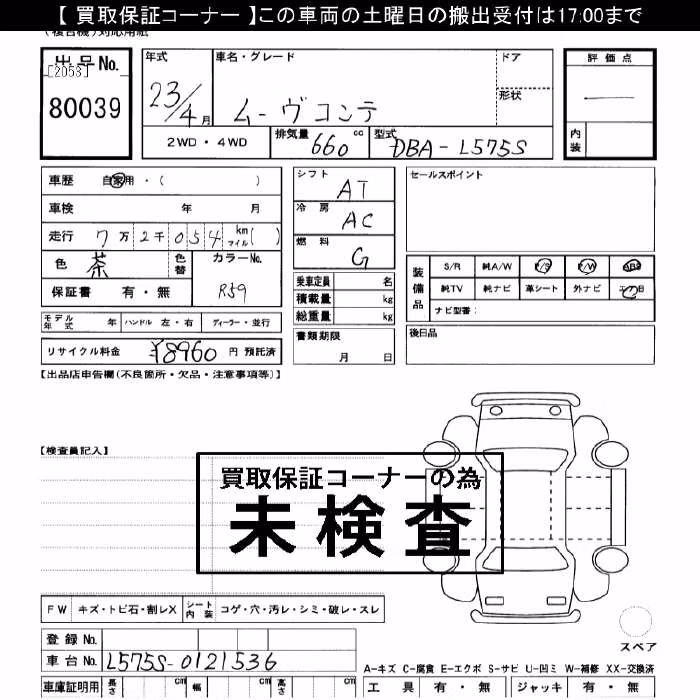 【 買取保証コーナー 】この車両の土曜日の搬出受付は17:00まで
(複合機)対応用紙
出品No. [2053] 80039
年式 23/4月
車名・グレード ムーヴコンテ
ドア
形状
評価点 —
内装
2WD・4WD 排気量 660 cc 型式 DBA-L575S
車歴 自家用・( )
車検 年 月
走行 7万2千054 km マイル( )
色 茶 色替 カラーNo. R59
保証書 有・無
モデル年式 年 ハンドル 左・右 ディーラー・並行
リサイクル料金 ¥8960 円 預託済
シフト AT
冷房 AC
燃料 G
乗車定員 名
積載量 kg
総重量 kg
書類期限 月 日
セールスポイント
装備品 S/R 純A/W P/S P/W ABS
純TV 純ナビ 革シート 外ナビ エアB
ナビ型番:
後日品
【出品店申告欄(不良箇所・欠品・注意事項等)】
【検査員記入】
買取保証コーナーの為
未検査
FW キズ・トビ石・割レX シート内装 コゲ・穴・汚レ・シミ・破レ・スレ
登録No.
車台No. L575S-0121536
車庫証明用 長さ cm 幅 cm 高さ cm
スペア
A-キズ C-腐食 E-エクボ S-サビ U-凹ミ W-補修 XX-交換済
工具 有・無 ジャッキ 有・無